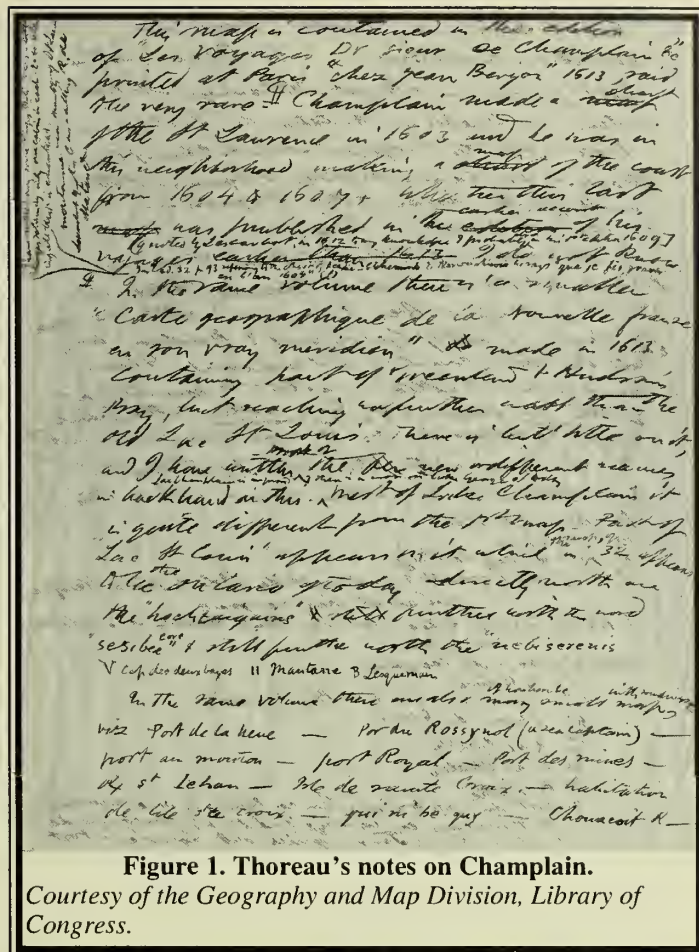 This map is contained in the edition
of "Les Voyages Du Sieur de Champlain" &c
printed at Paris "chez Jean Berjon" 1613 said
the very rare Champlain made a chart
of the St Lawrence in 1603 and he was in
this neighborhood making a map of the coast
from 1604 to 1607 + whether this last
map was published in the earlier account of his
voyages earlier than 1613 I do not know
In the same volume there is a smaller
"Carte geographique de la Nouvelle franse
en son vray meridien" made in 1613
containing part of Greenland & Hudson's
Bay, but reaching no further west than the
old Lac St Louis. There is but little on it,
and I have written most of the new or different names
in backhand on this. West of Lake Champlain it
is quite different from the 1st map Part of
"Lac St Louis" appears on it which in the map of 32 appears
to be the Ontario of today directly north are
the "hochtaigains" & still further north the word
"sesibee" & still further north the "nebiserenis
V Cap des deus bayes 11 Mantane 3 Lesquemin
In the same volume there are also many small maps of harbors &c with
viz Port de la heve — Por du Rossygnol (a sea captain) —
port au mouton — port Royal — Port des mines —
R St Lehan — Isle de sainte Croix — habitation
de lile ste croix — qui ni be quy — Chouacoit R —
Figure 1. Thoreau's notes on Champlain.
Courtesy of the Geography and Map Division, Library of
Congress.